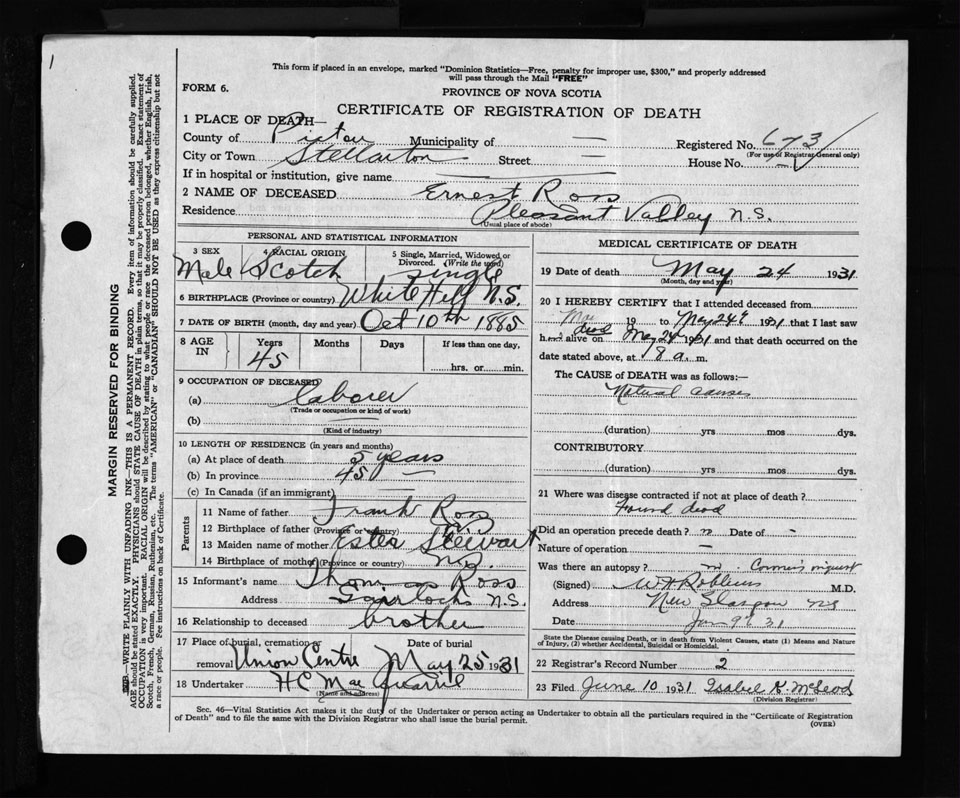 1
This form if placed in an envelope, marked "Dominion Statistics—Free, penalty for improper use, $300," and properly addressed
will pass through the Mail "FREE"
FORM 6.
PROVINCE OF NOVA SCOTIA
CERTIFICATE OF REGISTRATION OF DEATH
1 PLACE OF DEATH—
County of Pictou Municipality of — Registered No. 673
(For use of Registrar General only)
City or Town Stellarton Street — House No. —
If in hospital or institution, give name
2 NAME OF DECEASED Ernest Ross
Residence Pleasant Valley N.S.
(Usual place of abode)
PERSONAL AND STATISTICAL INFORMATION
3 SEX Male
4 RACIAL ORIGIN Scotch
5 Single, Married, Widowed or Divorced. (Write the word) single
6 BIRTHPLACE (Province or country) White Hill N.S.
7 DATE OF BIRTH (month, day and year) Oct 10th 1885
8 AGE IN Years Months Days If less than one day,
45 hrs. or min.
9 OCCUPATION OF DECEASED
(a) Laborer
(Trade or occupation or kind of work)
(b)
(Kind of industry)
10 LENGTH OF RESIDENCE (in years and months)
(a) At place of death 5 years
(b) In province 45 —
(c) In Canada (if an immigrant) —
Parents
11 Name of father Frank Ross
12 Birthplace of father (Province or country)
13 Maiden name of mother Ester Stewart
14 Birthplace of mother (Province or country) N.S.
15 Informant's name Thomas Ross
Address Gairloch N.S.
16 Relationship to deceased brother
17 Place of burial, cremation or removal Union Centre Date of burial May 25 1931
18 Undertaker H C MacQuarrie
(Name and address)
MEDICAL CERTIFICATE OF DEATH
19 Date of death May 24 1931
(Month, day and year)
20 I HEREBY CERTIFY that I attended deceased from
19 to May 24 1931 that I last saw
h alive on dead May 24 1931 and that death occurred on the
date stated above, at 8 a. m.
The CAUSE of DEATH was as follows:—
Natural causes
(duration) yrs mos dys.
CONTRIBUTORY
(duration) yrs mos dys.
21 Where was disease contracted if not at place of death?
Found dead
Did an operation precede death? n Date of -
Nature of operation —
Was there an autopsy? Coroner's inquest
(Signed) M.D.
Address New Glasgow NS
Date 31
State the Disease causing Death, or in death from Violent Causes, state (1) Means and Nature
of Injury, (2) whether Accidental, Suicidal or Homicidal.
22 Registrar's Record Number 2
23 Filed June 10 1931 Isabel K. McLeod
(Division Registrar)
Sec. 46—Vital Statistics Act makes it the duty of the Undertaker or person acting as Undertaker to obtain all the particulars required in the "Certificate of Registration
of Death" and to file the same with the Division Registrar who shall issue the burial permit.
(OVER)
MARGIN RESERVED FOR BINDING
—WRITE PLAINLY WITH UNFADING INK—THIS IS A PERMANENT RECORD. Every item of information should be carefully supplied.
AGE should be stated EXACTLY. PHYSICIANS should STATE CAUSE OF DEATH in plain terms, so that it may be properly classified. Exact statement of
OCCUPATION is very important. RACIAL ORIGIN will be described by stating to what people or race the deceased person belonged, whether English, Irish,
Scotch, French, German, Russian, Ruthenian, etc. The terms "AMERICAN" or "CANADIAN" SHOULD NOT BE USED as they express citizenship but not
a race or people. Fee instructions on back of Certificate.